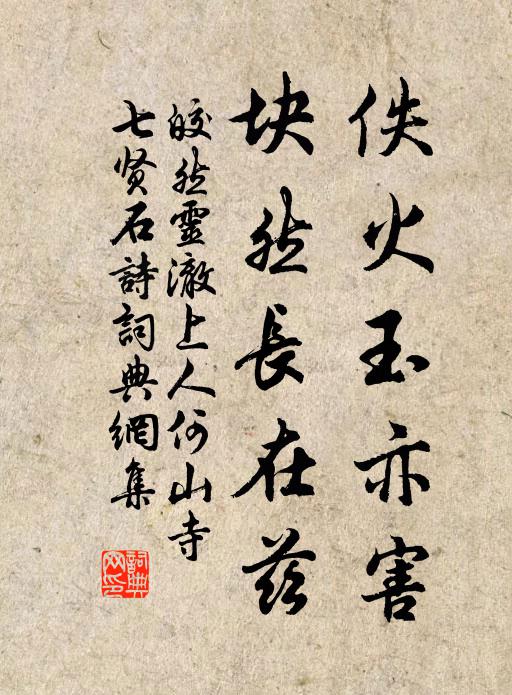 佚火玉亦害
块然長在茲
皎然靈澈上人何山寺
七贤石詩詞典網集
詞典网印